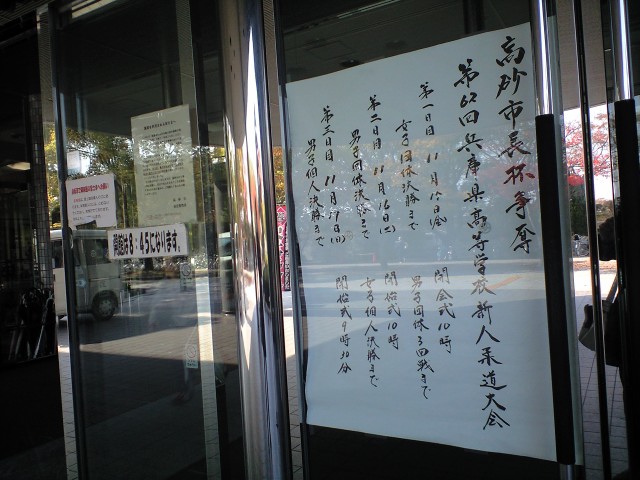 高砂市長杯争奪
第62回兵庫県高等学校新人柔道大会
第一日目 11月15日(金) 開会式10時
女子団体決勝まで 男子団体3回戦まで
第二日目 11月16日(土) 開始式10時
男子団体決勝まで 女子個人決勝まで
第三日目 11月17日(日) 開始式9時30分
男子個人決勝まで
開館は8:45になります。